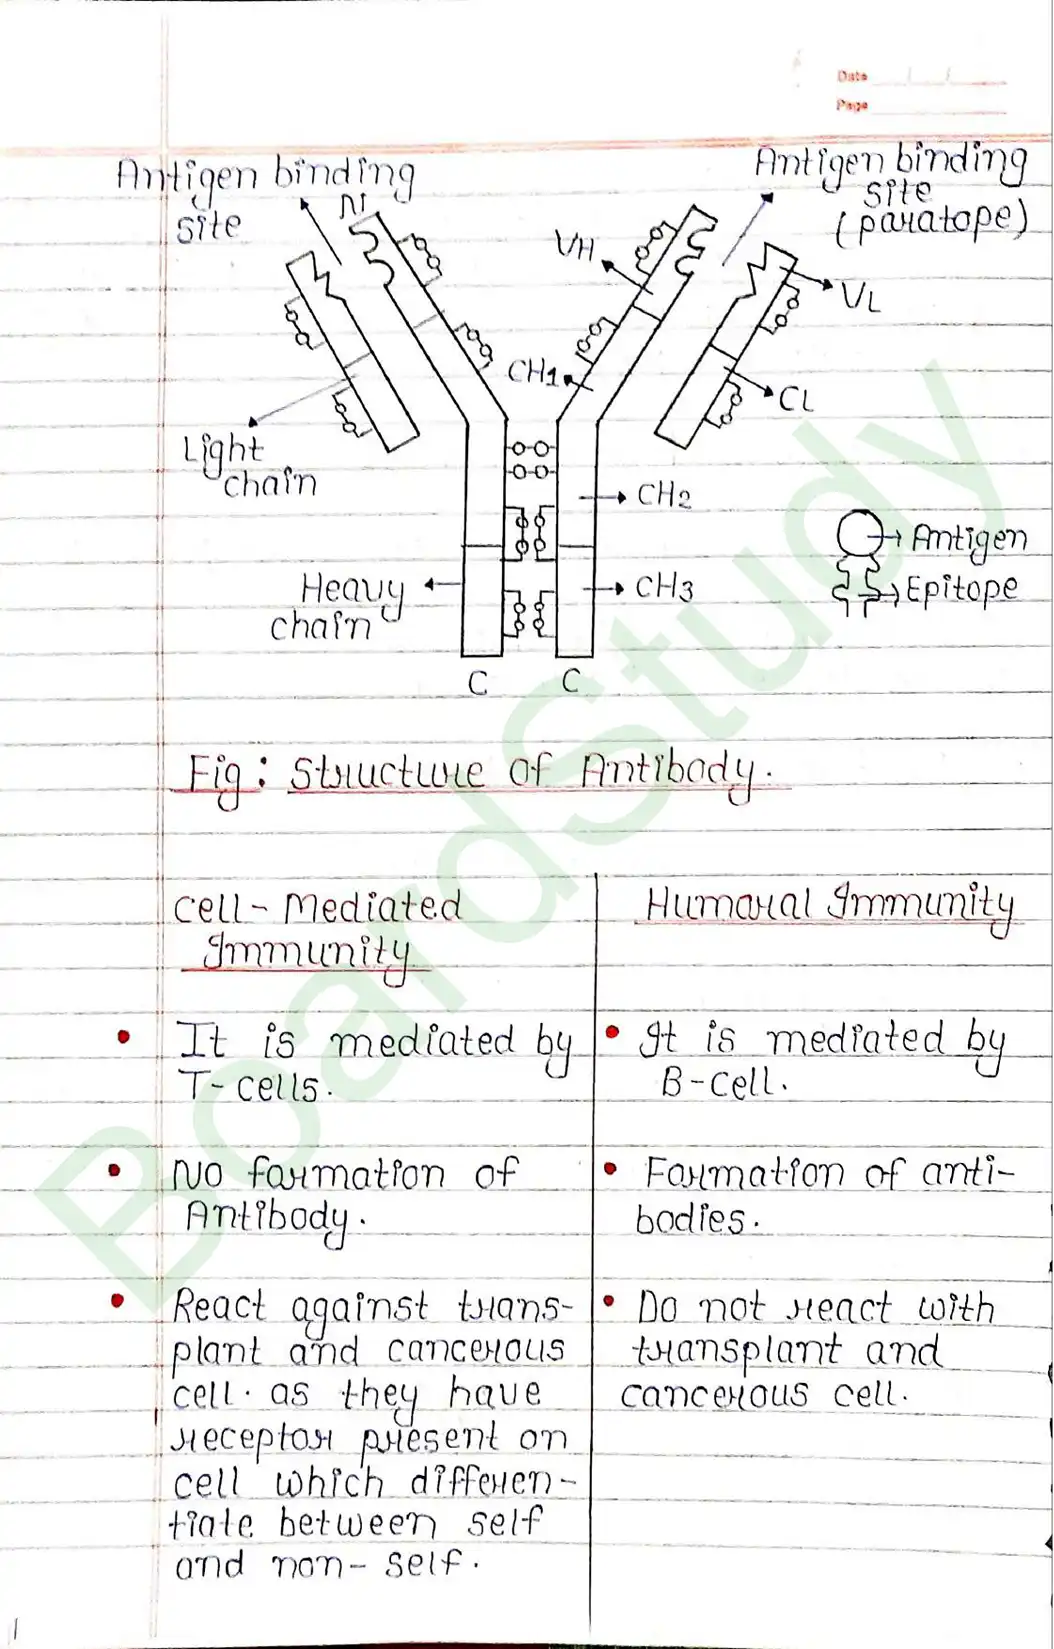 Date
Page
Antigen binding
site
N
Antigen binding
site
(paratope)
VH
VL
CH1
CL
Light
chain
CH2
Antigen
Heavy
chain
CH3
Epitope
C
C
Fig: Structure of Antibody.
Cell-Mediated
Immunity
Humoral Immunity
• It is mediated by
T-cells.
• It is mediated by
B-cell.
• No formation of
Antibody.
• Formation of anti-
bodies.
• React against trans-
plant and cancerous
cell. as they have
receptor present on
cell which differen-
tiate between self
and non-self.
• Do not react with
transplant and
cancerous cell.
BoardStudy